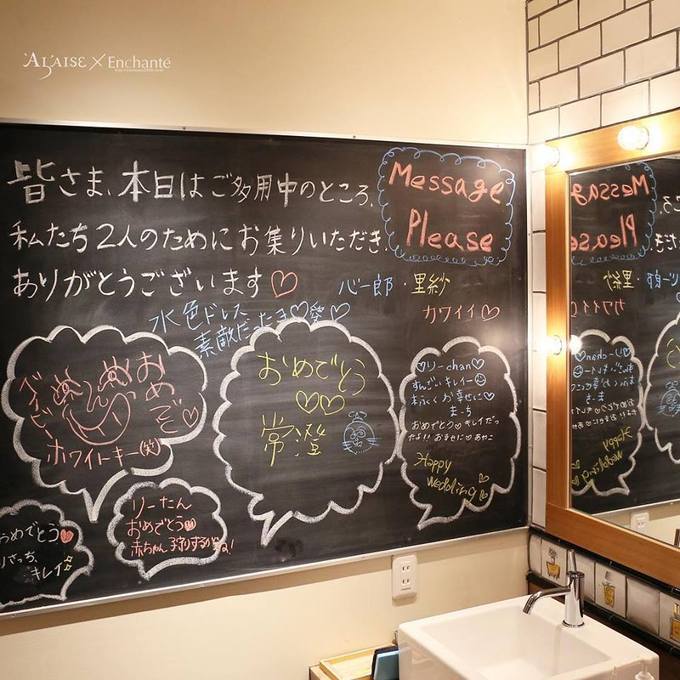 AL'AISE × Enchanté
皆さま、本日はご多用中のところ、
私たち2人のためにお集りいただき
ありがとうございます♡
Message
Please
心一郎・里紗
カワイイ♡
水色ドレス
素敵だったよ♡愛♡
おめぞ♡
ベイビー
ホワイトキー(笑)
おめでとう
♡♡
常澄
♡りーchan♡
すんごいキレイー
末永くお幸せに
まーち
おめでとう♡キレイだっ
たよ!!お幸せに♡あやこ
Happy
Wedding♡
りーたん
おめでとう
おめでとう♡
りさっち、
キレイ
Message
Please
カワイイ